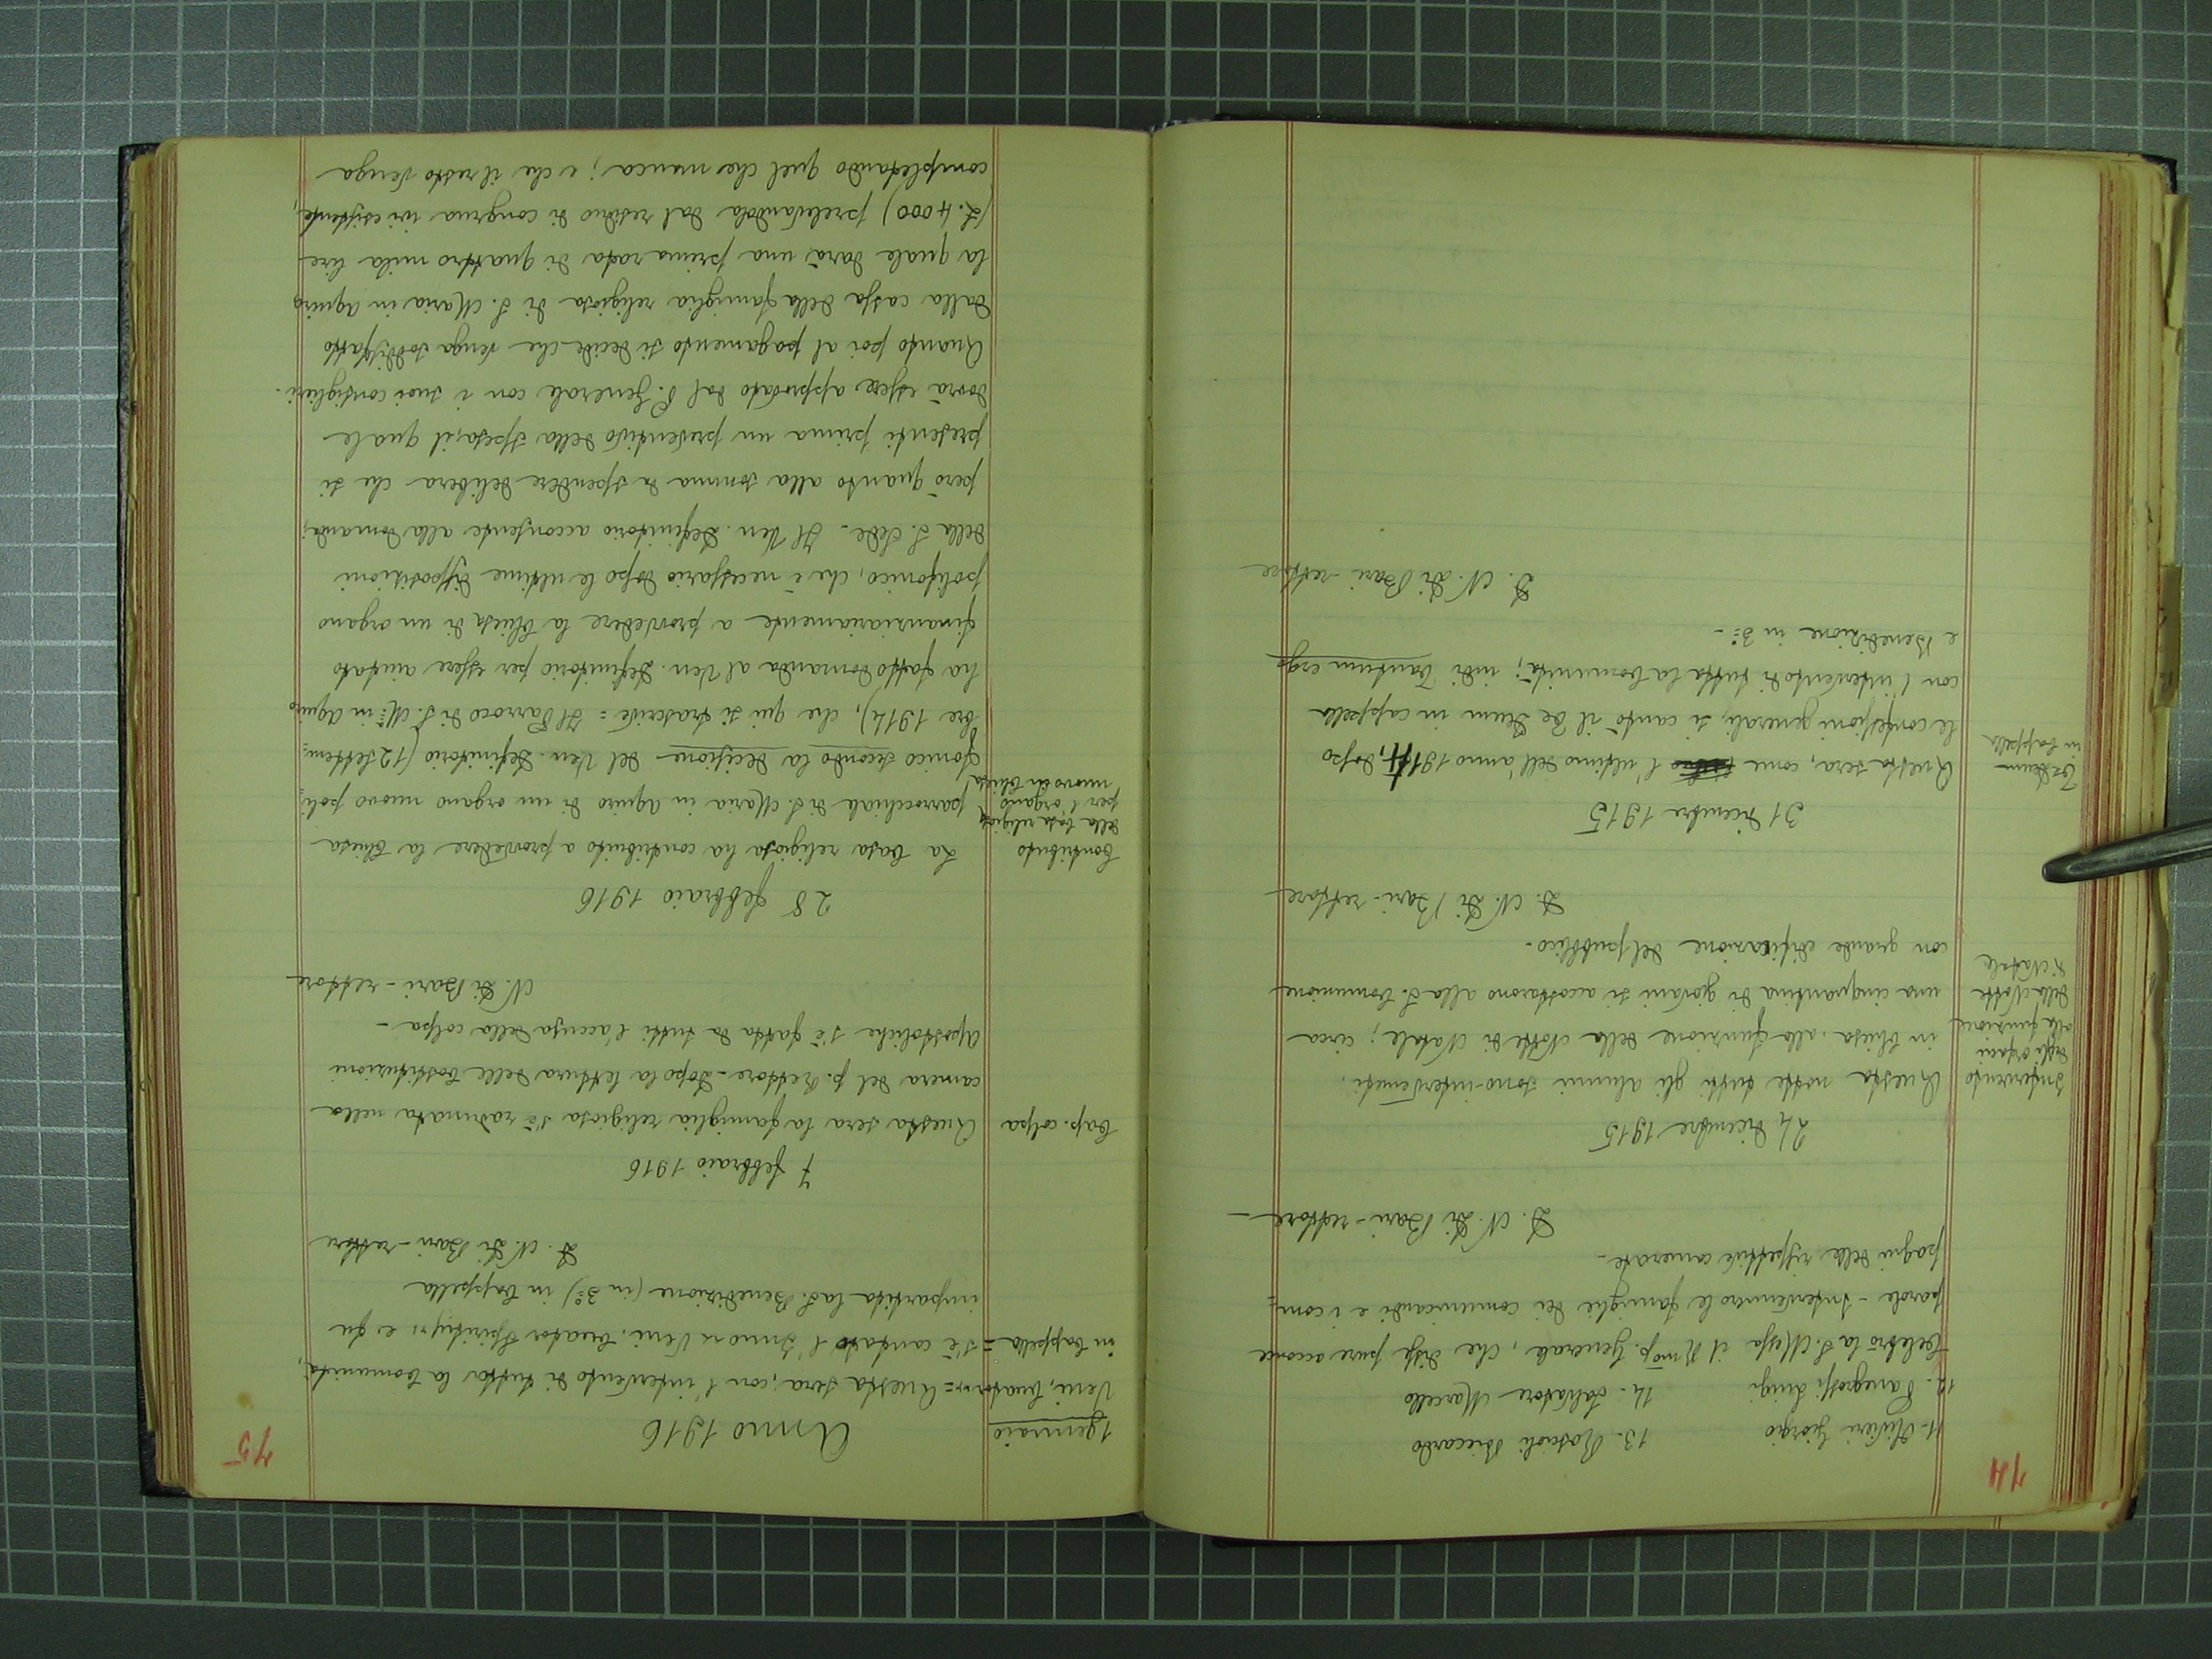 74
11. Olivieri Giorgio 13. Roscioli Riccardo
12. Panegrossi Luigi 14. Salvatore Marcello
Celebrò la S. Messa il R.mo p. Generale, che disse pure acconce
parole - Intervennero le famiglie dei comunicandi e i com=
pagni delle rispettive camerate -
D. N. Di Bari - rettore -
24 dicembre 1915
Intervento
degli orfani
alla funzione
della Notte
di Natale
Questa notte tutti gli alunni sono intervenuti,
in Chiesa, alla funzione della Notte di Natale; circa
una cinquantina di giovani si accostarono alla S. Comunione
con grande edificazione del pubblico -
D. N. Di Bari - rettore
31 dicembre 1915
Te Deum
in Cappella
Questa sera, come l'ultimo dell'anno 1914, dopo
le confessioni generali, si cantò il Te Deum in cappella
con l'intervento di tutta la Comunità; indi Tantum ergo
e Benedizione in 3º -
D. N. Di Bari - rettore
75
Anno 1916
1 gennaio
Veni, Creator
in Cappella =
Questa sera, con l'intervento di tutta la Comunità,
s'è cantato l'Inno "Veni, Creator Spiritus" e fu
impartita la S. Benedizione (in 3º) in Cappella
D. N. Di Bari - rettore
7 febbraio 1916
Cap. colpa
Questa sera la famiglia religiosa s'è radunata nella
camera del p. Rettore - Dopo la lettura delle Costituzioni
Apostoliche s'è fatta da tutti l'accusa della colpa -
N. Di Bari - rettore
28 febbraio 1916
Contributo
della Casa religiosa
per l'organo
nuovo in Chiesa
La Casa religiosa ha contribuito a provvedere la Chiesa
parrocchiale di S. Maria in Aquiro di un organo nuovo poli=
fonico secondo la decisione del Ven. Definitorio (12 Settem=
bre 1914), che qui si trascrive = Il Parroco di S. M.ª in Aquiro
ha fatto domanda al Ven. Definitorio per essere aiutato
finanziariamente a provvedere la Chiesa di un organo
polifonico, che è necessario dopo le ultime disposizioni
della S. Sede - Il Ven. Definitorio acconsente alla domanda;
però quanto alla somma da spendere delibera che si
presenti prima un preventivo della spesa, il quale
dovrà essere approvato dal P. Generale con i suoi consiglieri.
Quanto poi al pagamento si decide che venga soddisfatto
dalla cassa della famiglia religiosa di S. Maria in Aquiro
la quale darà una prima rata di quattro mila lire
(L. 4000) prelevandola dal residuo di congrua ivi esistente,
completando quel che manca; e che il resto venga